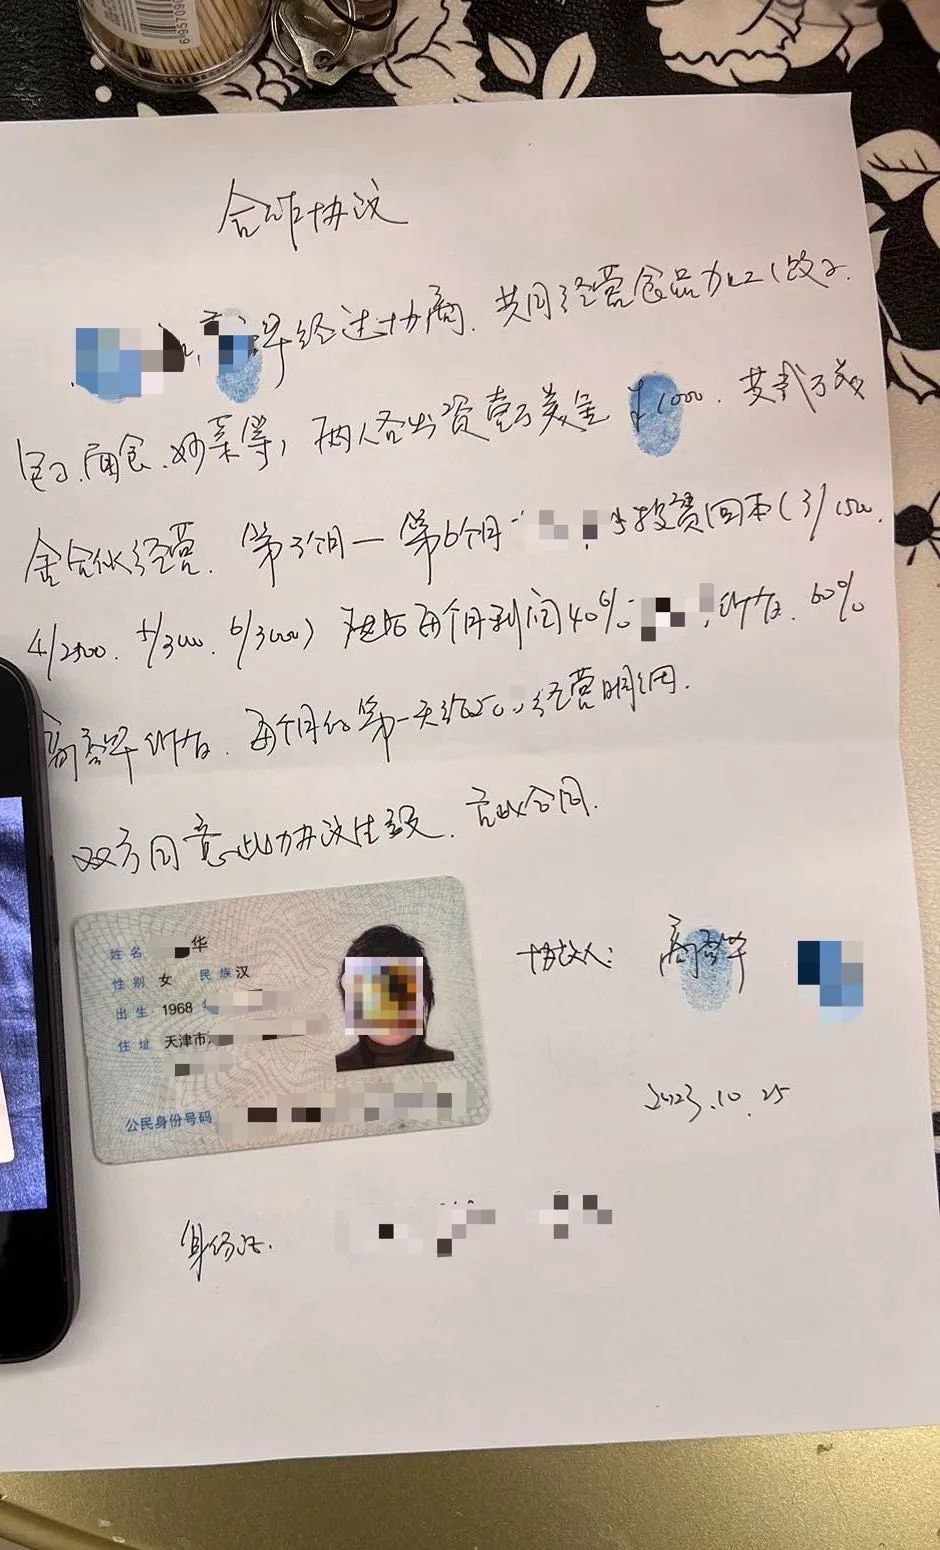 6957090
合作协议
经过协商.共同经营食品加工(饺子.
包子.面食.炒菜等),两人各出资壹万美金 1000.共贰万美
金合伙经营.第3个月—第6个月 为投资回本(3/1500.
4/2500. 5/3000. 6/3000) 然后每个月利润40% 所有.60%
所有.每个月的第一天给 经营明细.
双方同意此协议生效.
姓名 华
性别 女 民族 汉
出生 1968
住址 天津市
公民身份号码
协议人:
2023.10.25
身份证.